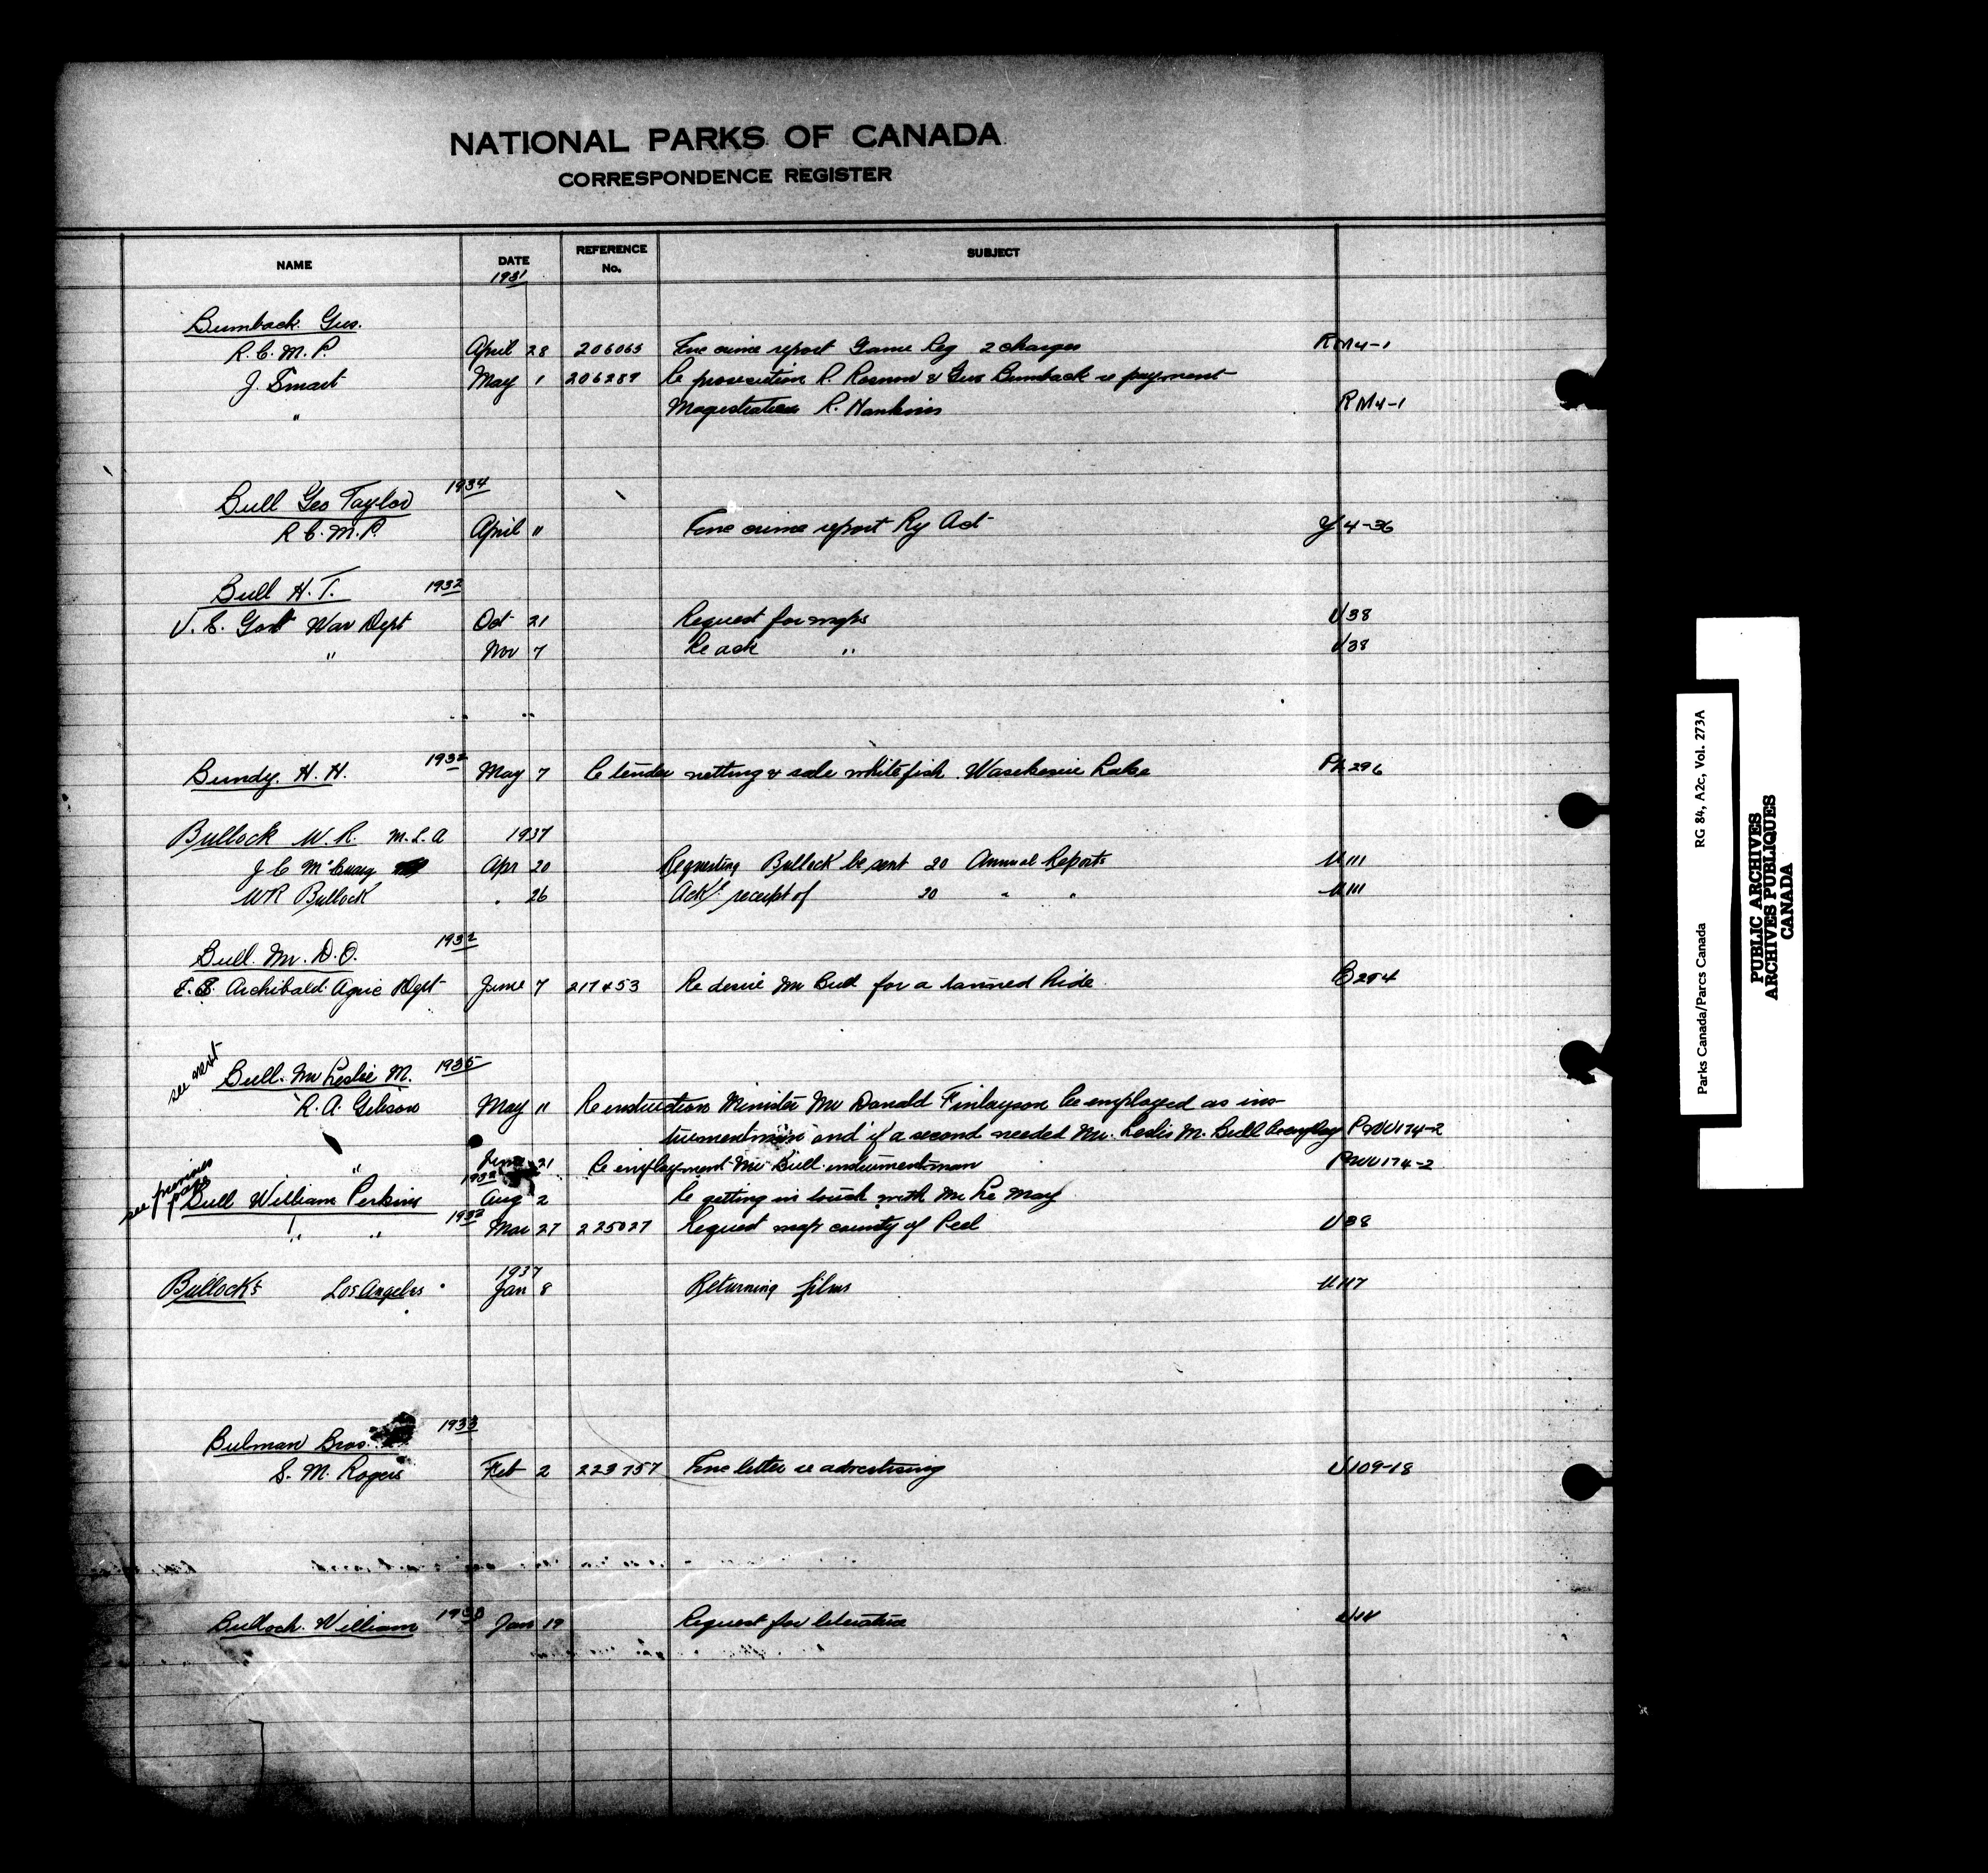 NATIONAL PARKS OF CANADA
CORRESPONDENCE REGISTER
NAME DATE REFERENCE No. SUBJECT
1931
Bumback. Gus.
R.C.M.P. April 28 206065 Enc crime report Game Reg 2 charges RM4-1
J. Smart May 1 206289 Re prosecution R. & Gus Bumback re payment
" Magistrate R. Hankins RM4-1
Bull Geo Taylor 1934
R.C.M.P. April 11 Enc crime report Ry Act 4-36
Bull H.T. 1932
U.S. Govt War Dept Oct 21 Request for maps U38
" Nov 7 Re ack " U38
Bundy. H.H. 1932 May 7 Re tender netting & sale whitefish Waskesiu Lake PA296
Bullock W.R. M.L.A 1937
J C Apr 20 Requesting Bullock be sent 20 Annual Reports U111
WR Bullock " 26 Ack's receipt of 20 " " U111
Bull. Mr. D.O. 1932
E.S. Archibald. Agric Dept June 7 217453 Re desire Mr Bull for a tanned hide B294
see next
Bull. Mr Leslie M. 1935
R.A. Gibson May 11 Re instruction Minister Mr Donald Finlayson be employed as ins-
trumentman and if a second needed Mr. Leslie M. Bull PWU174-2
" June 21 Re employment Mr Bull instrumentman PWU174-2
see previous page
Bull William Perkins 1932 Aug 2 Re getting in touch with Mr Le May
" " 1933 Mar 27 225027 Request map county of Peel U38
Bullock's Los Angeles 1937 Jan 8 Returning films U117
Bulman Bros. 1933
S.M. Rogers Feb 2 223757 Enc letter re advertising U109-18
Bulloch. William 1933 Jan 19 Request for literature
Parks Canada/Parcs Canada RG 84, A2c, Vol. 273A
PUBLIC ARCHIVES
ARCHIVES PUBLIQUES
CANADA